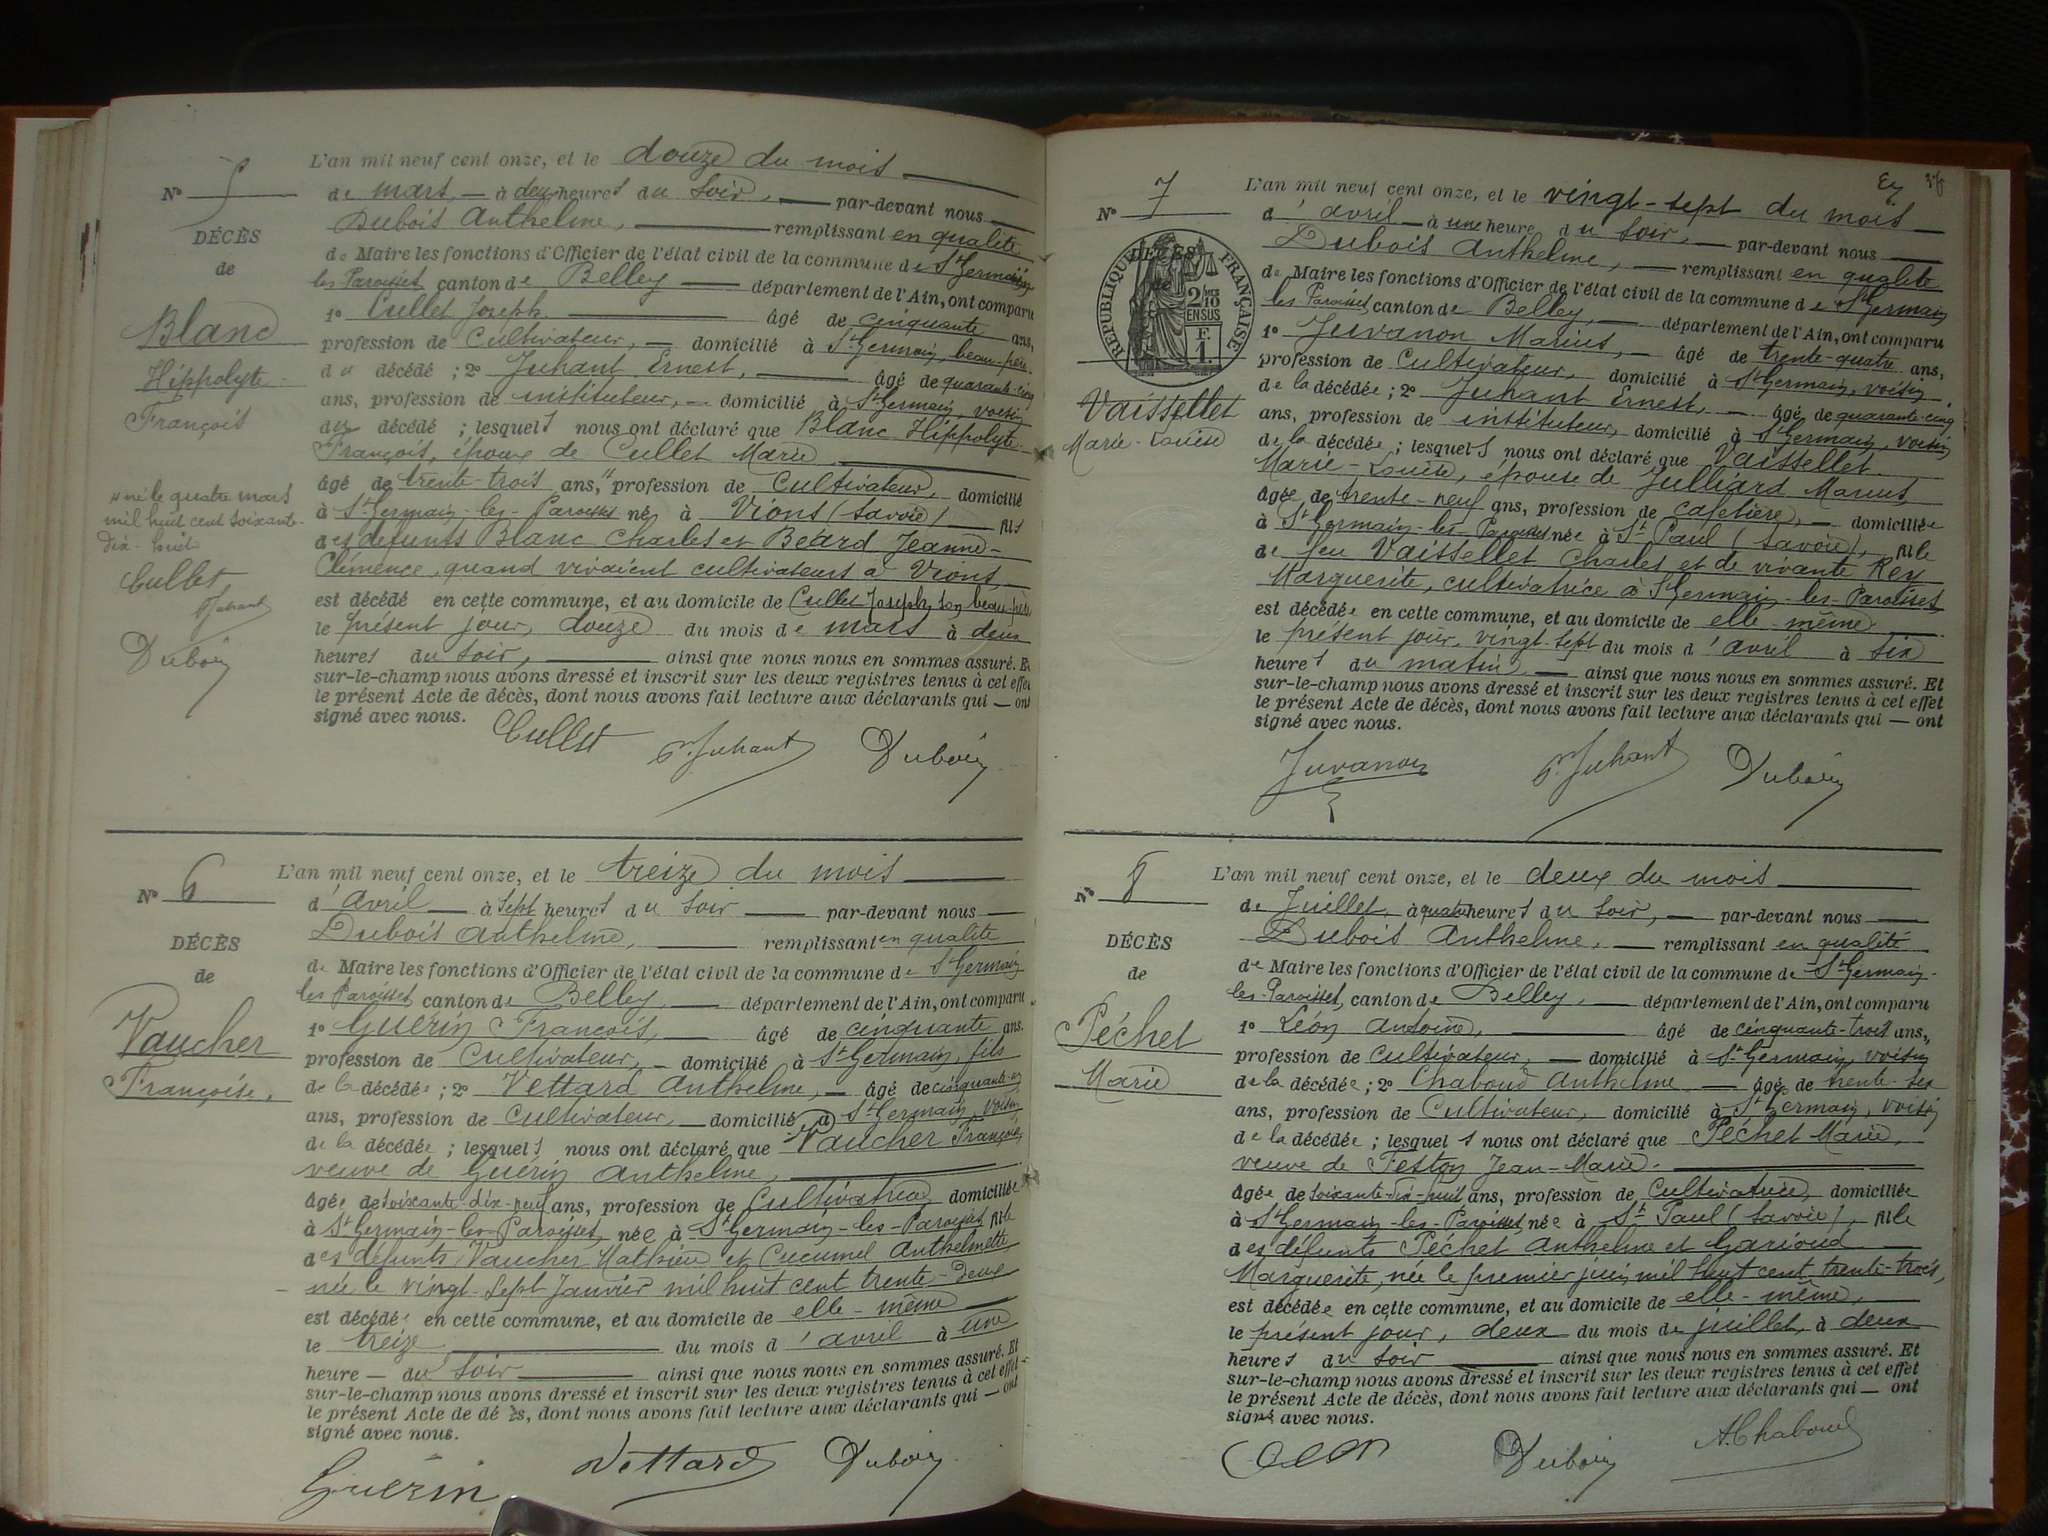 N° 5
DÉCÈS
de
Blanc
Hippolyte
François
né le quatre mars
mil huit cent soixante-
dix-huit
Cullet
Juhant
Dubois
L'an mil neuf cent onze, et le douze du mois
de mars à deux heures du soir, par-devant nous
Dubois Anthelme, remplissant en qualité
de Maire les fonctions d'Officier de l'état civil de la commune de St Germain
les Paroisses canton de Belley département de l'Ain, ont comparu
1° Cullet Joseph âgé de cinquante ans,
profession de Cultivateur, domicilié à St Germain, beau-père
du décédé ; 2° Juhant Ernest, âgé de quarante-cinq
ans, profession de instituteur, domicilié à St Germain, voisin
du décédé ; lesquels nous ont déclaré que Blanc Hippolyte
François, époux de Cullet Marie
âgé de trente-trois ans, profession de Cultivateur, domicilié
à St Germain-les-Paroisses né à Vions (Savoie) fils
des défunts Blanc Charles et Béard Jeanne-
Clémence, quand vivaient cultivateurs à Vions
est décédé en cette commune, et au domicile de Cullet Joseph, son beau-père
le présent jour, douze du mois de mars à deux
heures du soir, ainsi que nous nous en sommes assuré. Et
sur-le-champ nous avons dressé et inscrit sur les deux registres tenus à cet effet
le présent Acte de décès, dont nous avons fait lecture aux déclarants qui — ont
signé avec nous.
Cullet Juhant Dubois
N° 6
DÉCÈS
de
Vaucher
Françoise,
L'an mil neuf cent onze, et le treize du mois
d'avril à sept heures du soir par-devant nous
Dubois Anthelme, remplissant en qualité
de Maire les fonctions d'Officier de l'état civil de la commune de St Germain
les Paroisses canton de Belley département de l'Ain, ont comparu
1° Guérin François, âgé de cinquante ans,
profession de Cultivateur, domicilié à St Germain, fils
de la décédée ; 2° Vettard Anthelme, âgé de cinquante-un
ans, profession de Cultivateur, domicilié à St Germain, voisin
de la décédée ; lesquels nous ont déclaré que Vaucher Françoise,
veuve de Guérin Anthelme,
âgée de soixante-dix-neuf ans, profession de Cultivatrice domiciliée
à St Germain-les-Paroisses, née à St Germain-les-Paroisses fille
des défunts Vaucher Mathieu et Cucumel Anthelmette,
née le vingt-sept janvier mil huit cent trente-deux
est décédée en cette commune, et au domicile de elle-même
le treize du mois d'avril à une
heure — du soir ainsi que nous nous en sommes assuré. Et
sur-le-champ nous avons dressé et inscrit sur les deux registres tenus à cet effet
le présent Acte de décès, dont nous avons fait lecture aux déclarants qui — ont
signé avec nous.
Guérin Vettard Dubois
N° 7
DÉCÈS
de
RÉPUBLIQUE FRANÇAISE
2/10 EN SUS
F. 1.
Vaissellet
Marie-Louise
L'an mil neuf cent onze, et le vingt-sept du mois
d'avril à une heure du soir, par-devant nous
Dubois Anthelme, remplissant en qualité
de Maire les fonctions d'Officier de l'état civil de la commune de St Germain
les Paroisses, canton de Belley, département de l'Ain, ont comparu
1° Juvanon Marius, âgé de trente-quatre ans,
profession de Cultivateur, domicilié à St Germain, voisin
de la décédée ; 2° Juhant Ernest, âgé de quarante-cinq
ans, profession de instituteur, domicilié à St Germain, voisin
de la décédée ; lesquels nous ont déclaré que Vaissellet
Marie-Louise, épouse de Julliard Marius,
âgée de trente-neuf ans, profession de cafetière, domiciliée
à St Germain-les-Paroisses née à St Paul (Savoie), fille
de feu Vaissellet Charles et de vivante Rey
Marguerite, cultivatrice à St Germain-les-Paroisses
est décédée en cette commune, et au domicile de elle-même
le présent jour, vingt-sept du mois d'avril à six
heures du matin ainsi que nous nous en sommes assuré. Et
sur-le-champ nous avons dressé et inscrit sur les deux registres tenus à cet effet
le présent Acte de décès, dont nous avons fait lecture aux déclarants qui — ont
signé avec nous.
Juvanon Juhant Dubois
N° 8
DÉCÈS
de
Péchet
Marie
L'an mil neuf cent onze, et le deux du mois
de Juillet à quatre heures du soir, par-devant nous
Dubois Anthelme, remplissant en qualité
de Maire les fonctions d'Officier de l'état civil de la commune de St Germain-
les-Paroisses, canton de Belley, département de l'Ain, ont comparu
1° Léon Antoine, âgé de cinquante-trois ans,
profession de Cultivateur, domicilié à St Germain, voisin
de la décédée ; 2° Chaboud Anthelme âgé de trente-six
ans, profession de Cultivateur, domicilié à St Germain, voisin
de la décédée ; lesquels nous ont déclaré que Péchet Marie,
veuve de Feston Jean-Marie.
âgée de soixante-dix-huit ans, profession de Cultivatrice, domiciliée
à St Germain-les-Paroisses, née à St Paul (Savoie), fille
des défunts Péchet Anthelme et Garioud
Marguerite, née le premier juin mil huit cent trente-trois,
est décédée en cette commune, et au domicile de elle-même,
le présent jour, deux du mois de juillet, à deux
heures du soir ainsi que nous nous en sommes assuré. Et
sur-le-champ nous avons dressé et inscrit sur les deux registres tenus à cet effet
le présent Acte de décès, dont nous avons fait lecture aux déclarants qui — ont
signé avec nous.
Léon Dubois A. Chaboud